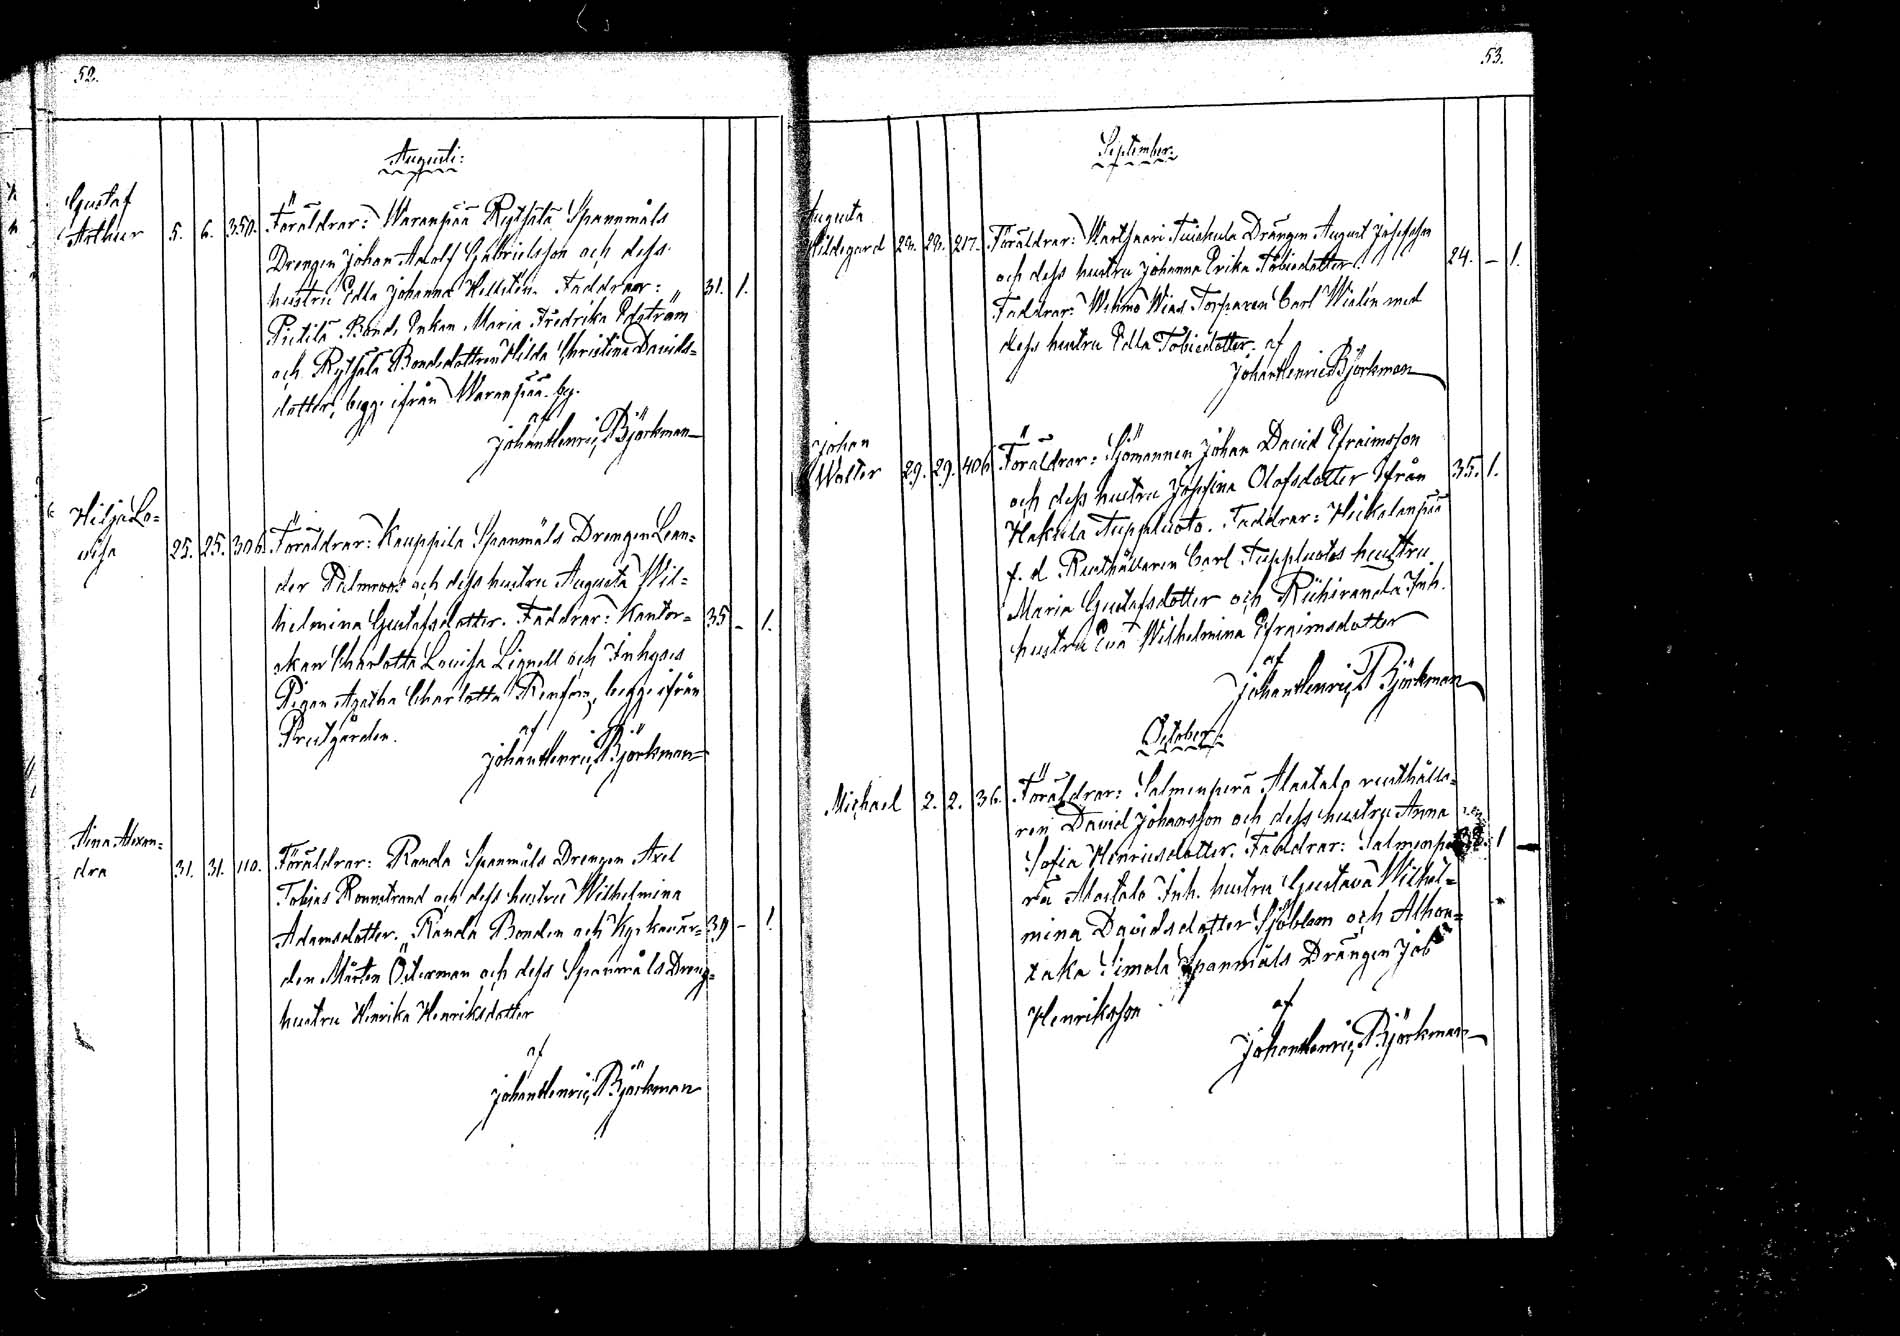 52.
Augusti:
Gustaf
Arthur 5. 6. 350. Föräldrar: Waranpää Rytsälä Spannmåls
Drengen Johan Adolf Gabrielsson och dess
hustru Edla Johanna Hellstén. Faddrar: 31. 1.
Pietilä Bonde Enkan Maria Fredrika Edström
och Rytsälä Bondedottren Hilda Christina Davids-
dotter, begge ifrån Waranpää by.
af
Johan Henric Björkman
Hilja Lo-
visa 25. 25. 306. Föräldrar: Kauppila Spanmåls Drengen Lean-
der Palmroos och dess hustru Augusta Wil-
helmina Gustafsdotter. Faddrar: Kantor- 35 - 1.
skan Charlotta Lovisa Lignell och Inhyses
Pigan Agatha Charlotta Renfors, begge ifrån
Prestgården.
af
Johan Henric Björkman
Aina Alexan-
dra 31. 31. 110. Föräldrar: Randa Spanmåls Drengen Axel
Tobias Rönnstrand och dess hustru Wilhelmina
Adamsdotter. Randa Bonden och Kyrkovär- 39 - 1.
den Mårten Österman och dess Spanmåls Dreng-
hustru Henrika Henriksdotter
af
Johan Henric Björkman
53.
September:
Augusta
Hildegard 28. 28. 217. Föräldrar: Wartsaari Tuiskula Drängen August Josefsson
och dess hustru Johanna Erika Tobiedotter. 24. - 1.
Faddrar: Wehmo Wias Torparen Carl Wialén med
dess hustru Edla Tobiedotter. af
Johan Henric Björkman
Johan
Walter 29. 29. 406 Föräldrar: Sjömannen Johan David Efraimsson
och dess hustru Josefina Olofsdotter ifrån 35. 1.
Hakula Tuppluoto. Faddrar: Heikolanpää
f. d. Rusthållaren Carl Tuppluotos hustru
Maria Gustafsdotter och Riihiranda Inh.
hustru Eva Wilhelmina Efraimsdotter
af
Johan Henric Björkman
October:
Michael 2. 2. 36. Föräldrar: Salmenperä Alastalo rusthålla-
ren David Johansson och dess hustru Anna
Sofia Henricsdotter. Faddrar: Salmenpe- 1
rä Alastalo Inh. hustru Gustava Wilhel-
mina Davidsdotter Sjöblom och Alhon-
taka Simola Spanmåls Drängen Job
Henriksson
af
Johan Henric Björkman